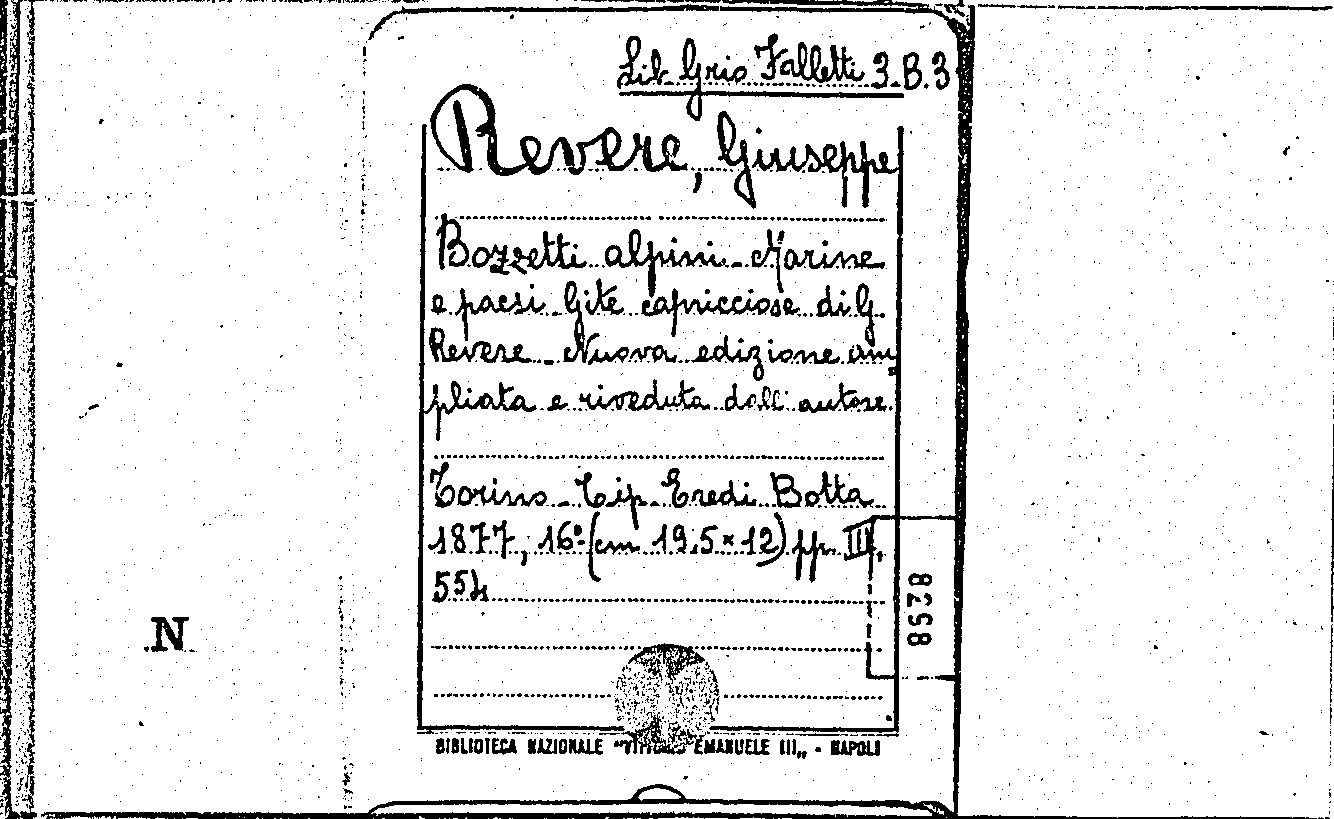 Lib Grio Falletti 3.B.3
Revere, Giuseppe
Bozzetti alpini - Marine
e paesi - Gite capricciose di G.
Revere - Nuova edizione am
pliata e riveduta dall'autore.
Torino - Tip. Eredi Botta
1877, 16º (cm 19,5 × 12) pp. III,
554
8528
N
BIBLIOTECA NAZIONALE "VITTORIO EMANUELE III„ - NAPOLI